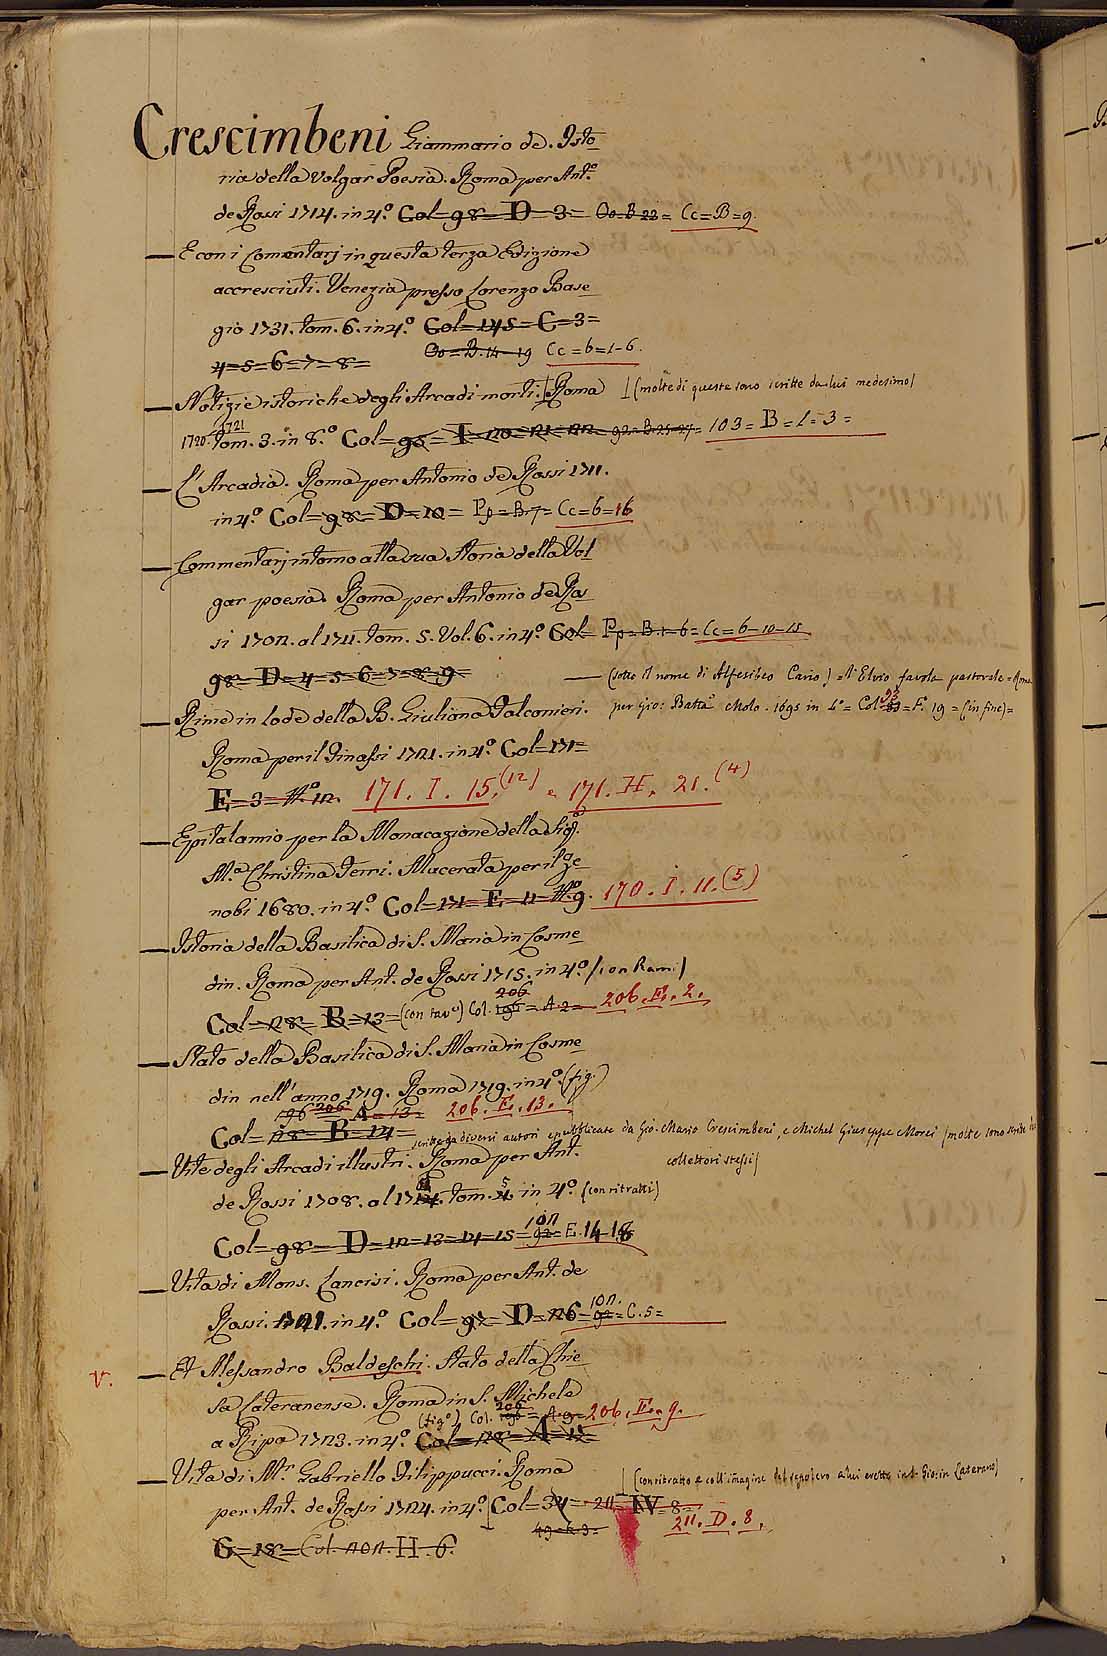 Crescimbeni Giammario de. Isto
ria della Volgar Poesia. Roma per Ant.º
de Rossi 1714. in 4.º Col=98=D=3= Oo-B 22= Cc=B=9.
— E con i Comentarj in questa terza Edizione
accresciuti. Venezia presso Lorenzo Base
gio 1731. tom. 6. in 4.º Col=145=C=3=
4=5=6=7=8= Oo=B.14-19 Cc=b=1-6.
— Notizie istoriche degli Arcadi morti. Roma (molte di queste sono scritte da lui medesimo)
1720. 1721 tom. 3. in 8.º Col=98=I=120=121=122= 92=B.25-27= 103=B=1=3=
— L'Arcadia. Roma per Antonio de Rossi 1711.
in 4.º Col=98=D=10= Pp=B-7= Cc=b=16
— Commentarj intorno alla sua Storia della Vol
gar poesia. Roma per Antonio de Ros
si 1702. al 1711. tom. 5. Vol. 6. in 4.º Col= Pp=B.1-6= Cc=b-10-15
98=D=4=5=6=7=8=9= — (sotto il nome di Alfesibeo Cario) = l'Elvio favola pastorale = Roma
— Rime in lode della B. Giuliana Falconieri. per Gio: Battã Molo. 1695 in 4º= Col 93=F. 19=(in fine)=
Roma per il Dinassi 1721. in 4.º Col=171=
E=3=N.º 12. 171. I. 15.(12) e 171. H. 21.(4)
— Epitalamio per la Monacazione della Sig.ª
M.ª Christina Ferri. Macerata per il Ze
nobi 1680. in 4.º Col=171=E=11=N.º 9. 170. I. 11.(5)
— Istoria della Basilica di S. Maria in Cosme
din. Roma per Ant. de Rossi 1715. in 4.º /con Rami/
Col=128=B=13=(con tavº) Col. 196 206=A.2= 206. E. 2.
— Stato della Basilica di S. Maria in Cosme
din nell'anno 1719. Roma 1719. in 4.º (fig.)
196 206 A=13= 206. E. 13.
Col=128=B=14= scritte da diversi autori e pubblicate da Gio. Mario Crescimbeni, e Michel Giuseppe Morei /molte sono scritte
— Vite degli Arcadi illustri. Roma per Ant. collettori stessi/
de Rossi 1708. al 17 tom. 5 in 4.º (con ritratti)
Col=98=D=12=13=14=15= 92 102=E.14-18
— Vita di Mons. Lancisi. Roma per Ant. de
Rossi. 1721. in 4.º Col=97=D=126= 92 102.=C.5=
v. — Et Alessandro Baldeschi. Stato della Chie
sa Lateranense. Roma in S. Michele
(figº) Col. 196 206=A.9= 206. E. 9.
a Ripa 1723. in 4.º Col=128=A=12=
— Vita di M.r Gabriello Filippucci. Roma (con ritratto e coll'imagine del sepolcro a lui eretto in S. Gio: in Laterano)
per Ant. de Rossi 1724. in 4.º Col=34= 211=IV=8=
211. D. 8.
G=18=Col. 202. H. 6.